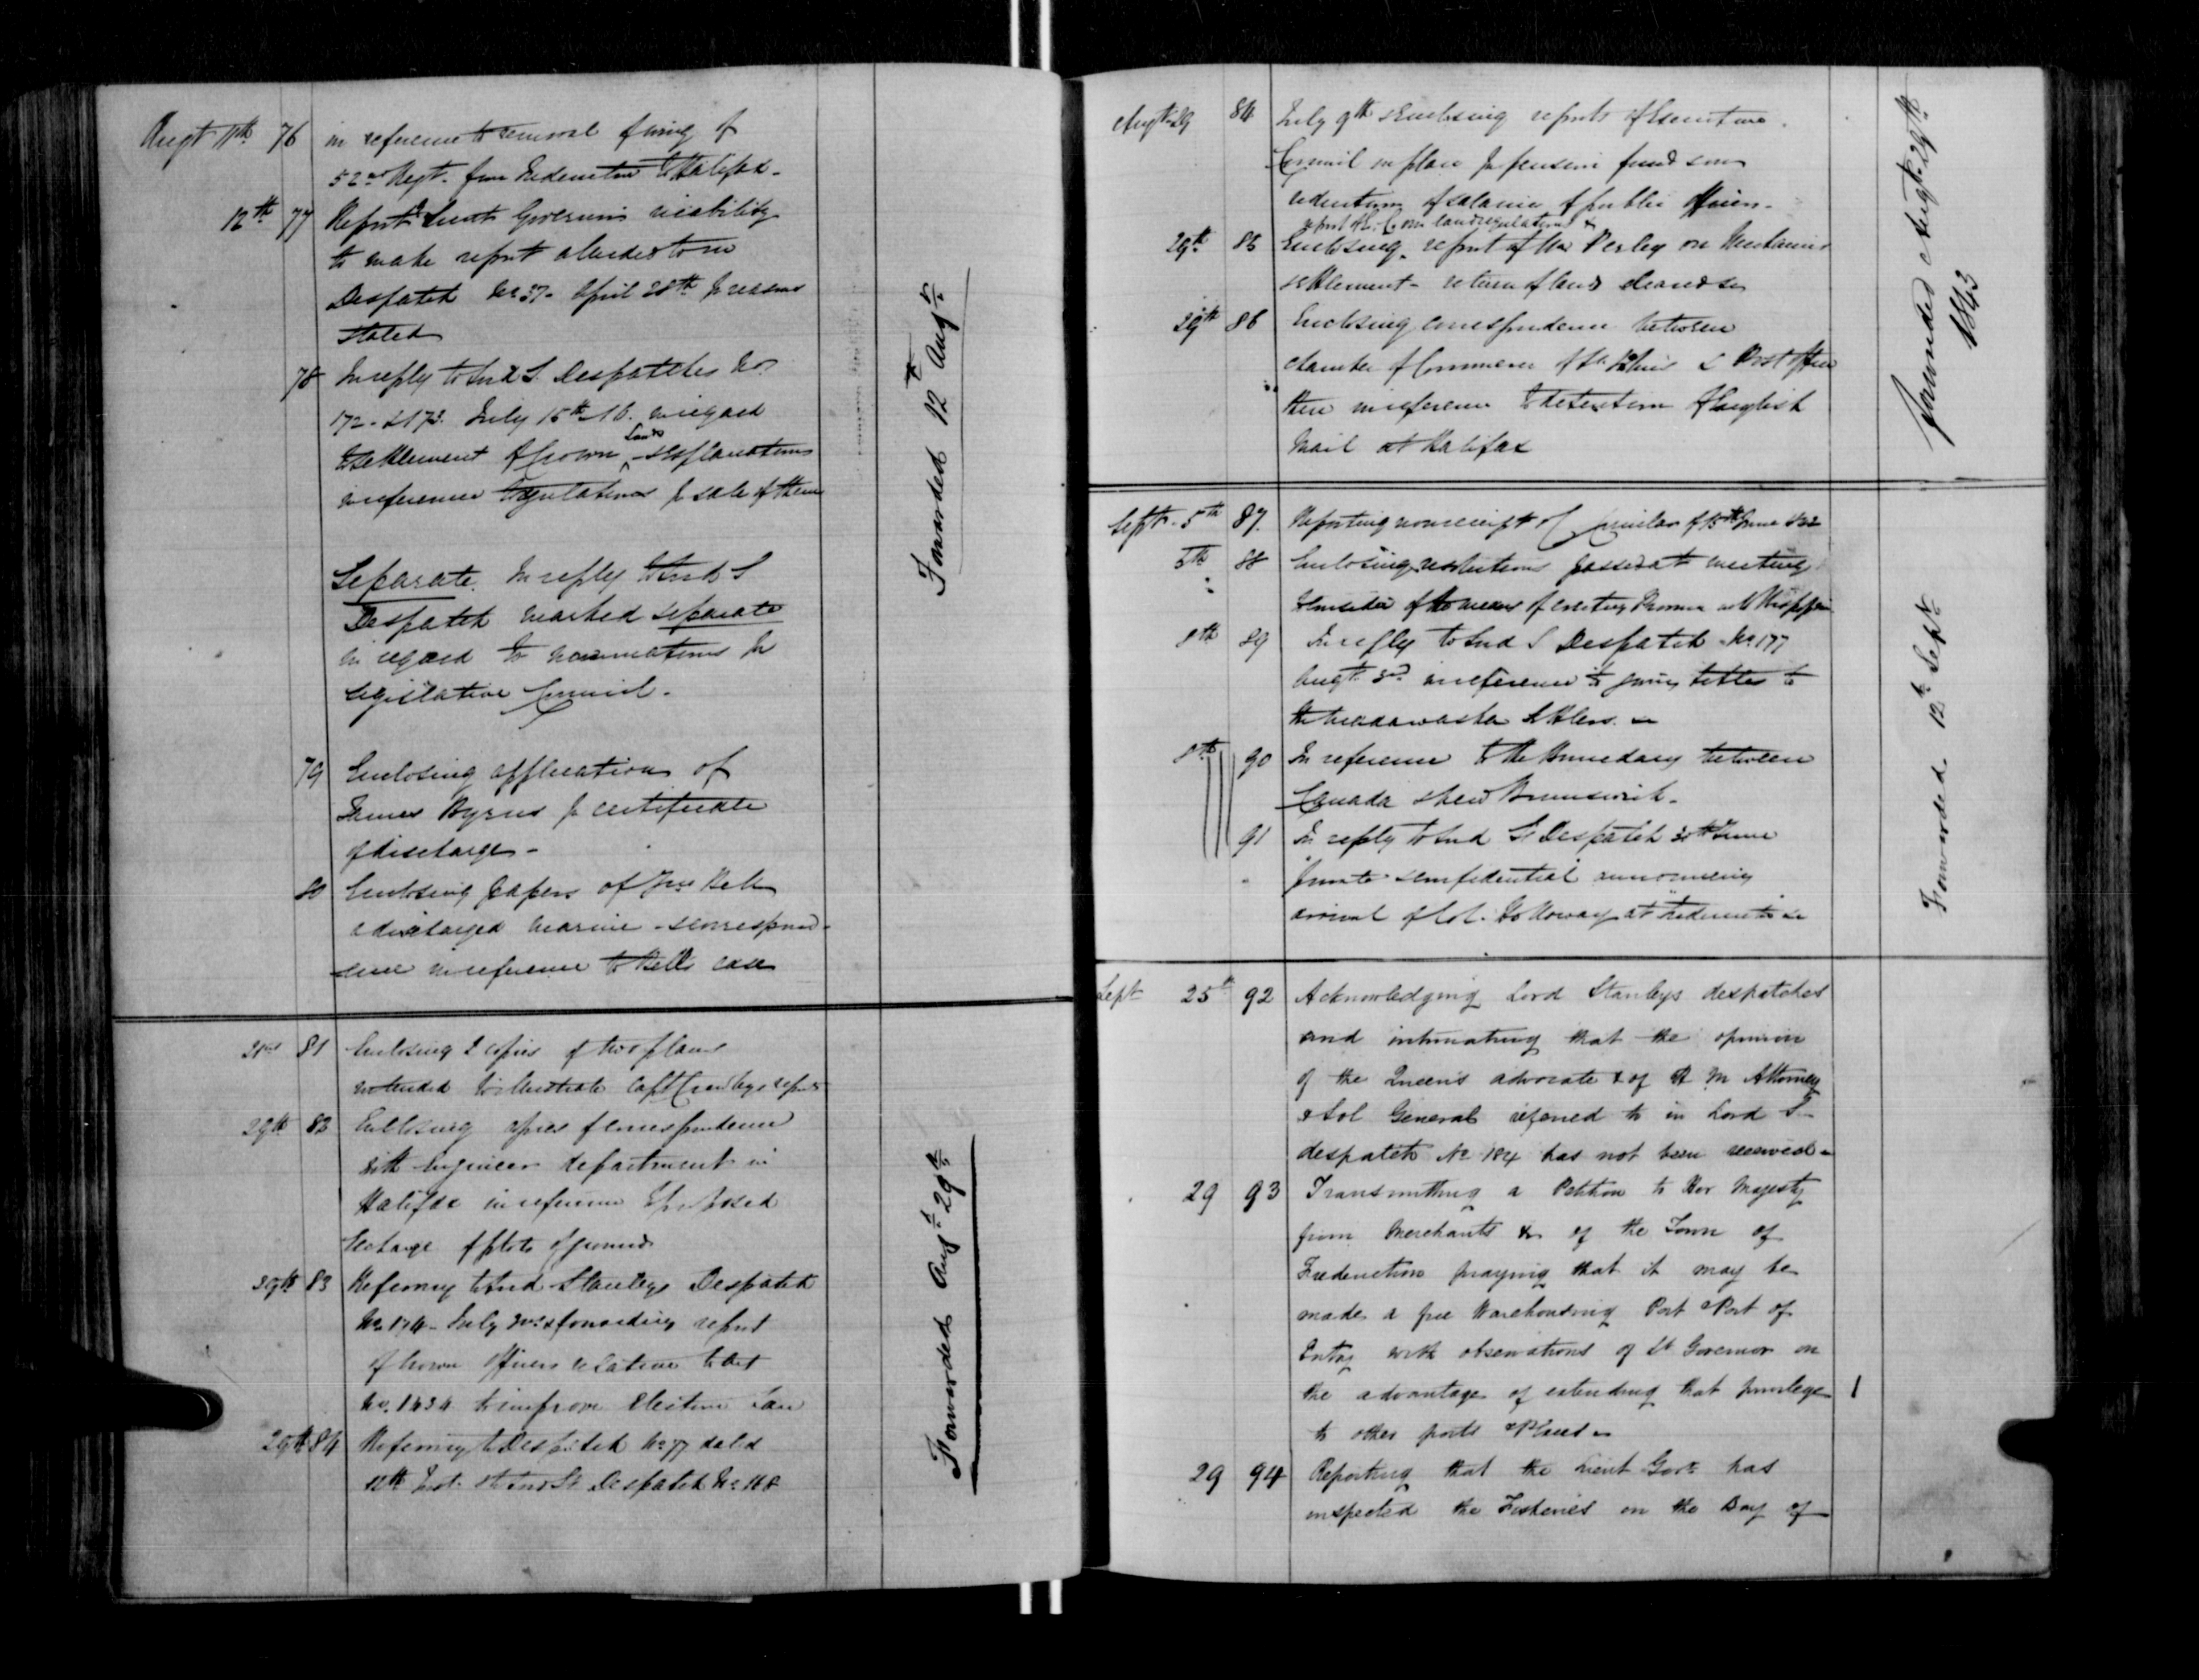 Augt 11th 76 in reference to removal of wing of
52nd Regt. from Fredericton to Halifax.
12th 77 Report Lieut Governors inability
to make report alluded to in
Despatch No 37 - April 28th for reasons
stated
78 In reply to Lord S. Despatches No
172 - & 173 July 15th 16. in regard
to settlement of Crown Lands - explanations
in reference to regulations for sale of them
Separate. In reply to Lord S
Despatch marked separate
in regard to nominations for
Legislative Council.
79 Enclosing application of
James Byrns for certificate
of discharge -
80 Enclosing papers of Bell
a discharged marine - & correspond-
ence in reference to Bells case
Forwarded 12th Augt
21st 81 Enclosing 2 copies of two plans
intended to illustrate Capt report
29th 82 Enclosing copies of correspondence
with Engineer department in
Halifax in reference to proposed
Exchange of plots of ground
29th 83 Referring to Lord Stanleys Despatch
No 174 - July forwarding report
of Crown Officers relative to Act
No. 1434 to improve Election Law
29th 84 Referring to Despatch No 77 dated
12th Inst. & Lord Ss Despatch No 168
Forwarded Augt 29th
Augt 29 84 July 9th & Enclosing reports of Executive
Council on plan for pension fund
reduction of salaries of public officers -
report of land regulations &
29th 85 Enclosing report of Mr Perley on Mechanics
settlement - return of land cleared &c
29th 86 Enclosing correspondence between
chamber of Commerce of St. Johns & Post office
there in reference to detention of English
Mail at Halifax
Forwarded Augt 29th
1843
Sept. 5th 87. Reporting nonreceipt of Circular of 15th June
5th 88 Enclosing resolutions passed at meeting
to consider of the means of erecting
8th 89 In reply to Lord S Despatch No 177
Augt 3d in reference to giving titles to
the Madawaska Settlers
8th 90 In reference to the Boundary between
Canada & New Brunswick -
91 In reply to Lord Ss Despatch 30th June
private & confidential announcing
arrival of Col. Holloway at Fredericton
Forwarded 12th Sept
Sept 25th 92 Acknowledging Lord Stanleys despatches
and intimating that the opinion
of the Queen's advocate & of H M Attorney
& Sol General referred to in Lord Ss
despatch No 184 has not been received -
29 93 Transmitting a Petition to Her Majesty
from Merchants &c of the Town of
Fredericton praying that it may be
made a free Warehousing Port & Port of
Entry with observations of Lt Governor on
the advantage of extending that privilege
to other ports & Places -
29 94 Reporting that the Lieut Govr has
inspected the Fisheries on the Bay of